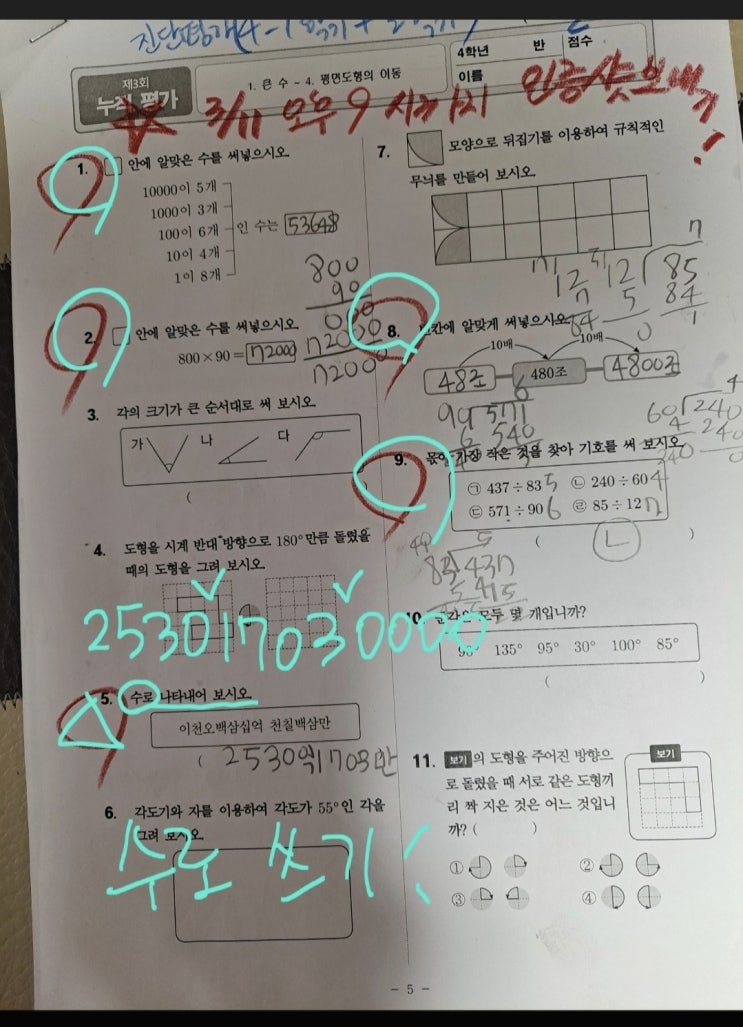 진단평가(4-1학기
4학년 반 점수
이름
제3회
누적 평가
1. 큰 수 ~ 4. 평면도형의 이동
3/11 오후 9시까지 인증샷보내기!
1. □ 안에 알맞은 수를 써넣으시오.
10000이 5개
1000이 3개
100이 6개
10이 4개
1이 8개
인 수는 53648
800
90
000
72000
72000
2. □ 안에 알맞은 수를 써넣으시오.
800×90=72000
3. 각의 크기가 큰 순서대로 써 보시오.
가 나 다
(
4. 도형을 시계 반대 방향으로 180°만큼 돌렸을
때의 도형을 그려 보시오.
253017030000
5. 수로 나타내어 보시오.
이천오백삼십억 천칠백삼만
( 2530억1703만
6. 각도기와 자를 이용하여 각도가 55°인 각을
그려 보시오.
수로 쓰기!
7. 모양으로 뒤집기를 이용하여 규칙적인
무늬를 만들어 보시오.
7
12
7
84
12
5
0
12 85
84
1
8. 빈칸에 알맞게 써넣으시오.
10배 10배
48조 480조 4800조
6
571
540
4
60 240
4 240
240 0
9. 몫이 가장 작은 것을 찾아 기호를 써 보시오.
㉠ 437÷83 5 ㉡ 240÷60 4
㉢ 571÷90 6 ㉣ 85÷12 7
( ㄴ )
5
83 437
415
10. 둔각은 모두 몇 개입니까?
90° 135° 95° 30° 100° 85°
( )
11. 보기 의 도형을 주어진 방향으
로 돌렸을 때 서로 같은 도형끼
리 짝 지은 것은 어느 것입니
까? ( )
보기
① ②
③ ④
- 5 -